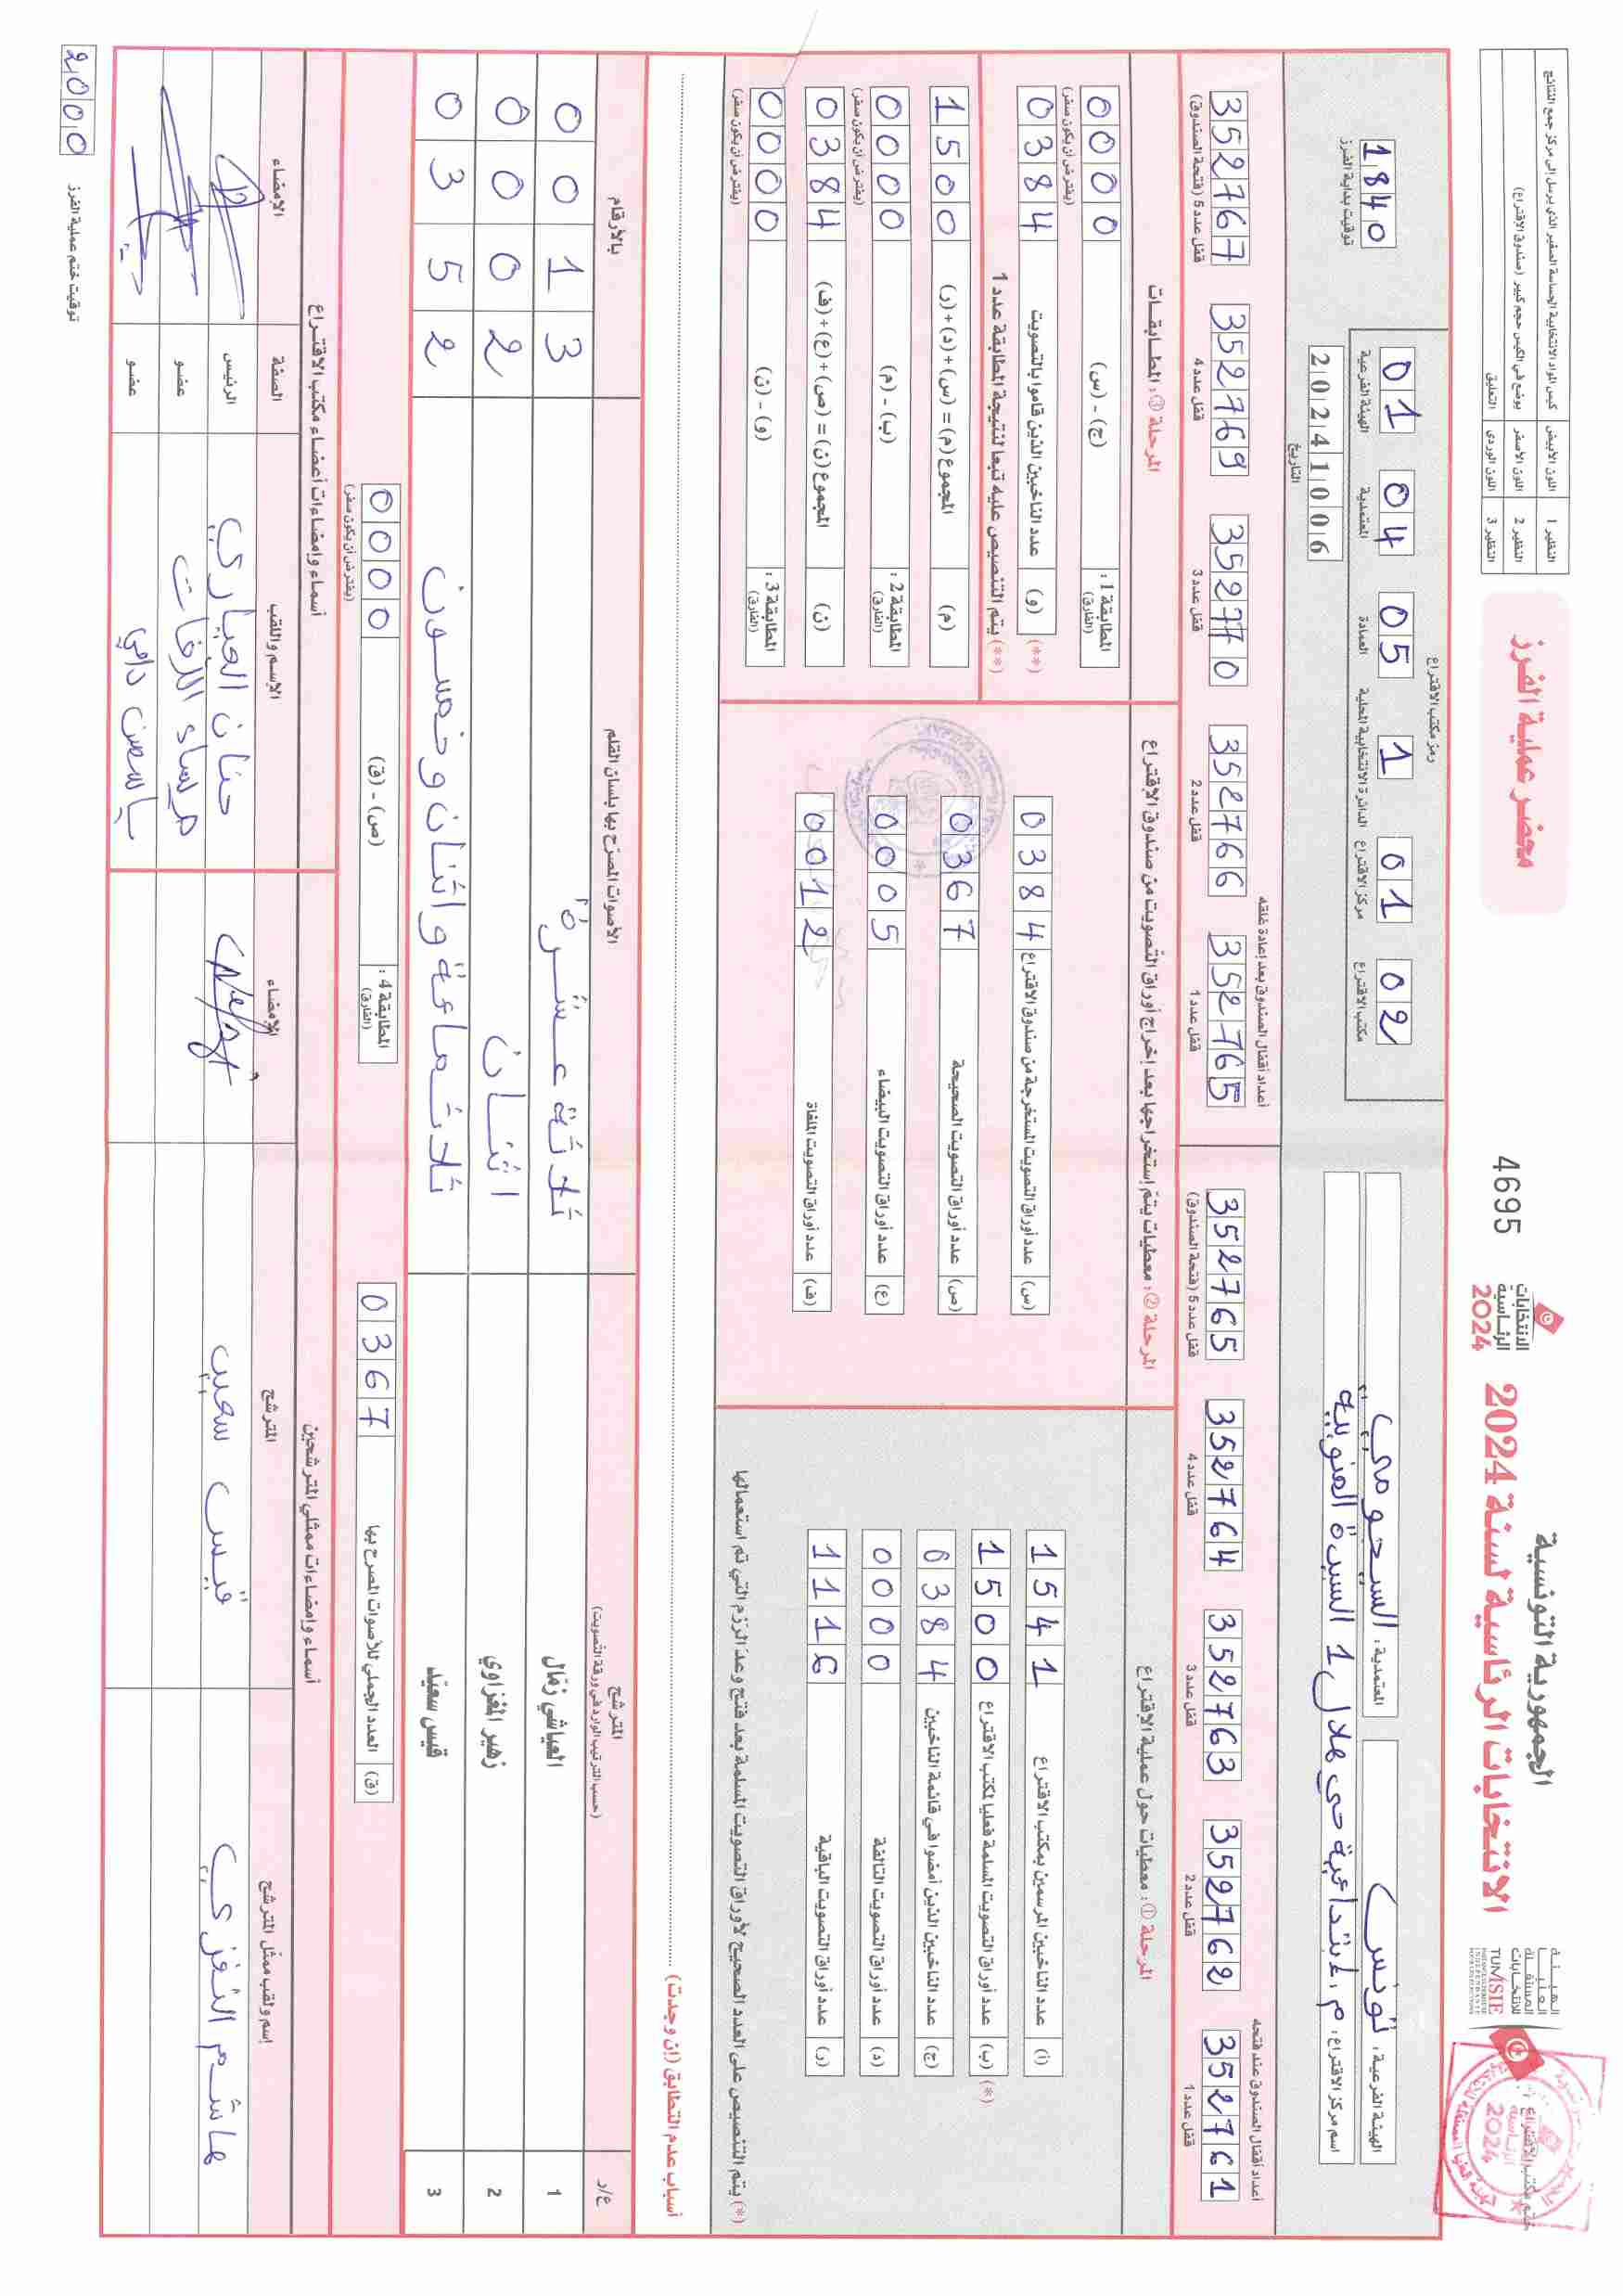 الجمهورية التونسية
الانتخابات الرئاسية لسنة 2024
الانتخابات
الرئاسية
2024
4695
محضر عملية الفرز
النظير 1 اللون الأبيض كيس المواد الانتخابية الحساسة الصغير الذي يرسل إلى مركز جمع النتائج
النظير 2 اللون الأصفر يوضع في الكيس حجم كبير (صندوق الاقتراع)
النظير 3 اللون الوردي التعليق
الهيئة العليا المستقلة للانتخابات
TUN/ISIE
الهيئة الفرعية: تونس
المعتمدية: السيجومي
اسم مركز الاقتراع: م. إبتدائية حي هلال 1 السيدة المنوبية
رمز مكتب الاقتراع
02 مكتب الاقتراع
01 مركز الاقتراع
1 الدائرة الانتخابية المحلية
05 العمادة
04 المعتمدية
01 الهيئة الفرعية
20241006
التاريخ
1840
توقيت بداية الفرز
أعداد أقفال الصندوق عند فتحه
352761 قفل عدد 1
352762 قفل عدد 2
352763 قفل عدد 3
352764 قفل عدد 4
352765 قفل عدد 5 (فتحة الصندوق)
أعداد أقفال الصندوق بعد إعادة غلقه
352765 قفل عدد 1
352766 قفل عدد 2
3527770 قفل عدد 3
352769 قفل عدد 4
352767 قفل عدد 5 (فتحة الصندوق)
المرحلة ①: معطيات حول عملية الاقتراع
(أ) عدد الناخبين المرسمين بمكتب الاقتراع 1541
(*) (ب) عدد أوراق التصويت المسلمة فعليا لمكتب الاقتراع 1500
(ج) عدد الناخبين الذين أمضوا في قائمة الناخبين 0384
(د) عدد أوراق التصويت التالفة 0000
(ر) عدد أوراق التصويت الباقية 1116
(*) يتم التنصيص على العدد الصحيح لأوراق التصويت المسلمة بعد فتح وعد الرزم التي تم استعمالها
المرحلة ②: معطيات يتم إستخراجها بعد إخراج أوراق التصويت من صندوق الاقتراع
(س) عدد أوراق التصويت المستخرجة من صندوق الاقتراع 0384
(ص) عدد أوراق التصويت الصحيحة 0367
(ع) عدد أوراق التصويت البيضاء 0005
(ف) عدد أوراق التصويت الملغاة 0012
المرحلة ③: المطابقات
المطابقة 1: (الفارق) (ج) - (س) 0000
(يفترض أن يكون صفر)
(**) (و) عدد الناخبين الذين قاموا بالتصويت 0384
(**) يتم التنصيص عليه تبعا لنتيجة المطابقة عدد 1
(م) المجموع (م) = (س) + (د) + (ر) 1500
المطابقة 2: (الفارق) (ب) - (م) 0000
(يفترض أن يكون صفر)
(ن) المجموع (ن) = (ص) + (ع) + (ف) 0384
المطابقة 3: (الفارق) (و) - (ن) 0000
(يفترض أن يكون صفر)
أسباب عدم التطابق (إن وجدت)
ع/ر المترشح (حسب الترتيب الوارد في ورقة التصويت) الأصوات المصرح بها بلسان القلم بالأرقام
1 العياشي زمّال ثلاثة عشرة 0013
2 زهير المغزاوي اثنان 0002
3 قيس سعيّد ثلاثماءة واثنان وخمسون 0352
(ق) العدد الجملي للأصوات المصرح بها 0367
المطابقة 4: (الفارق) (ص) - (ق) 0000
(يفترض أن يكون صفر)
أسماء وإمضاءات ممثلي المترشحين
إسم ولقب ممثل المترشح المترشح الإمضاء
هاشم النفزي قيس سعيد
أسماء وإمضاءات أعضاء مكتب الاقتراع
الإسم واللقب الصفة الامضاء
حنان العياري الرئيس
عضو
ياسمين دامي عضو
2000
توقيت ختم عملية الفرز